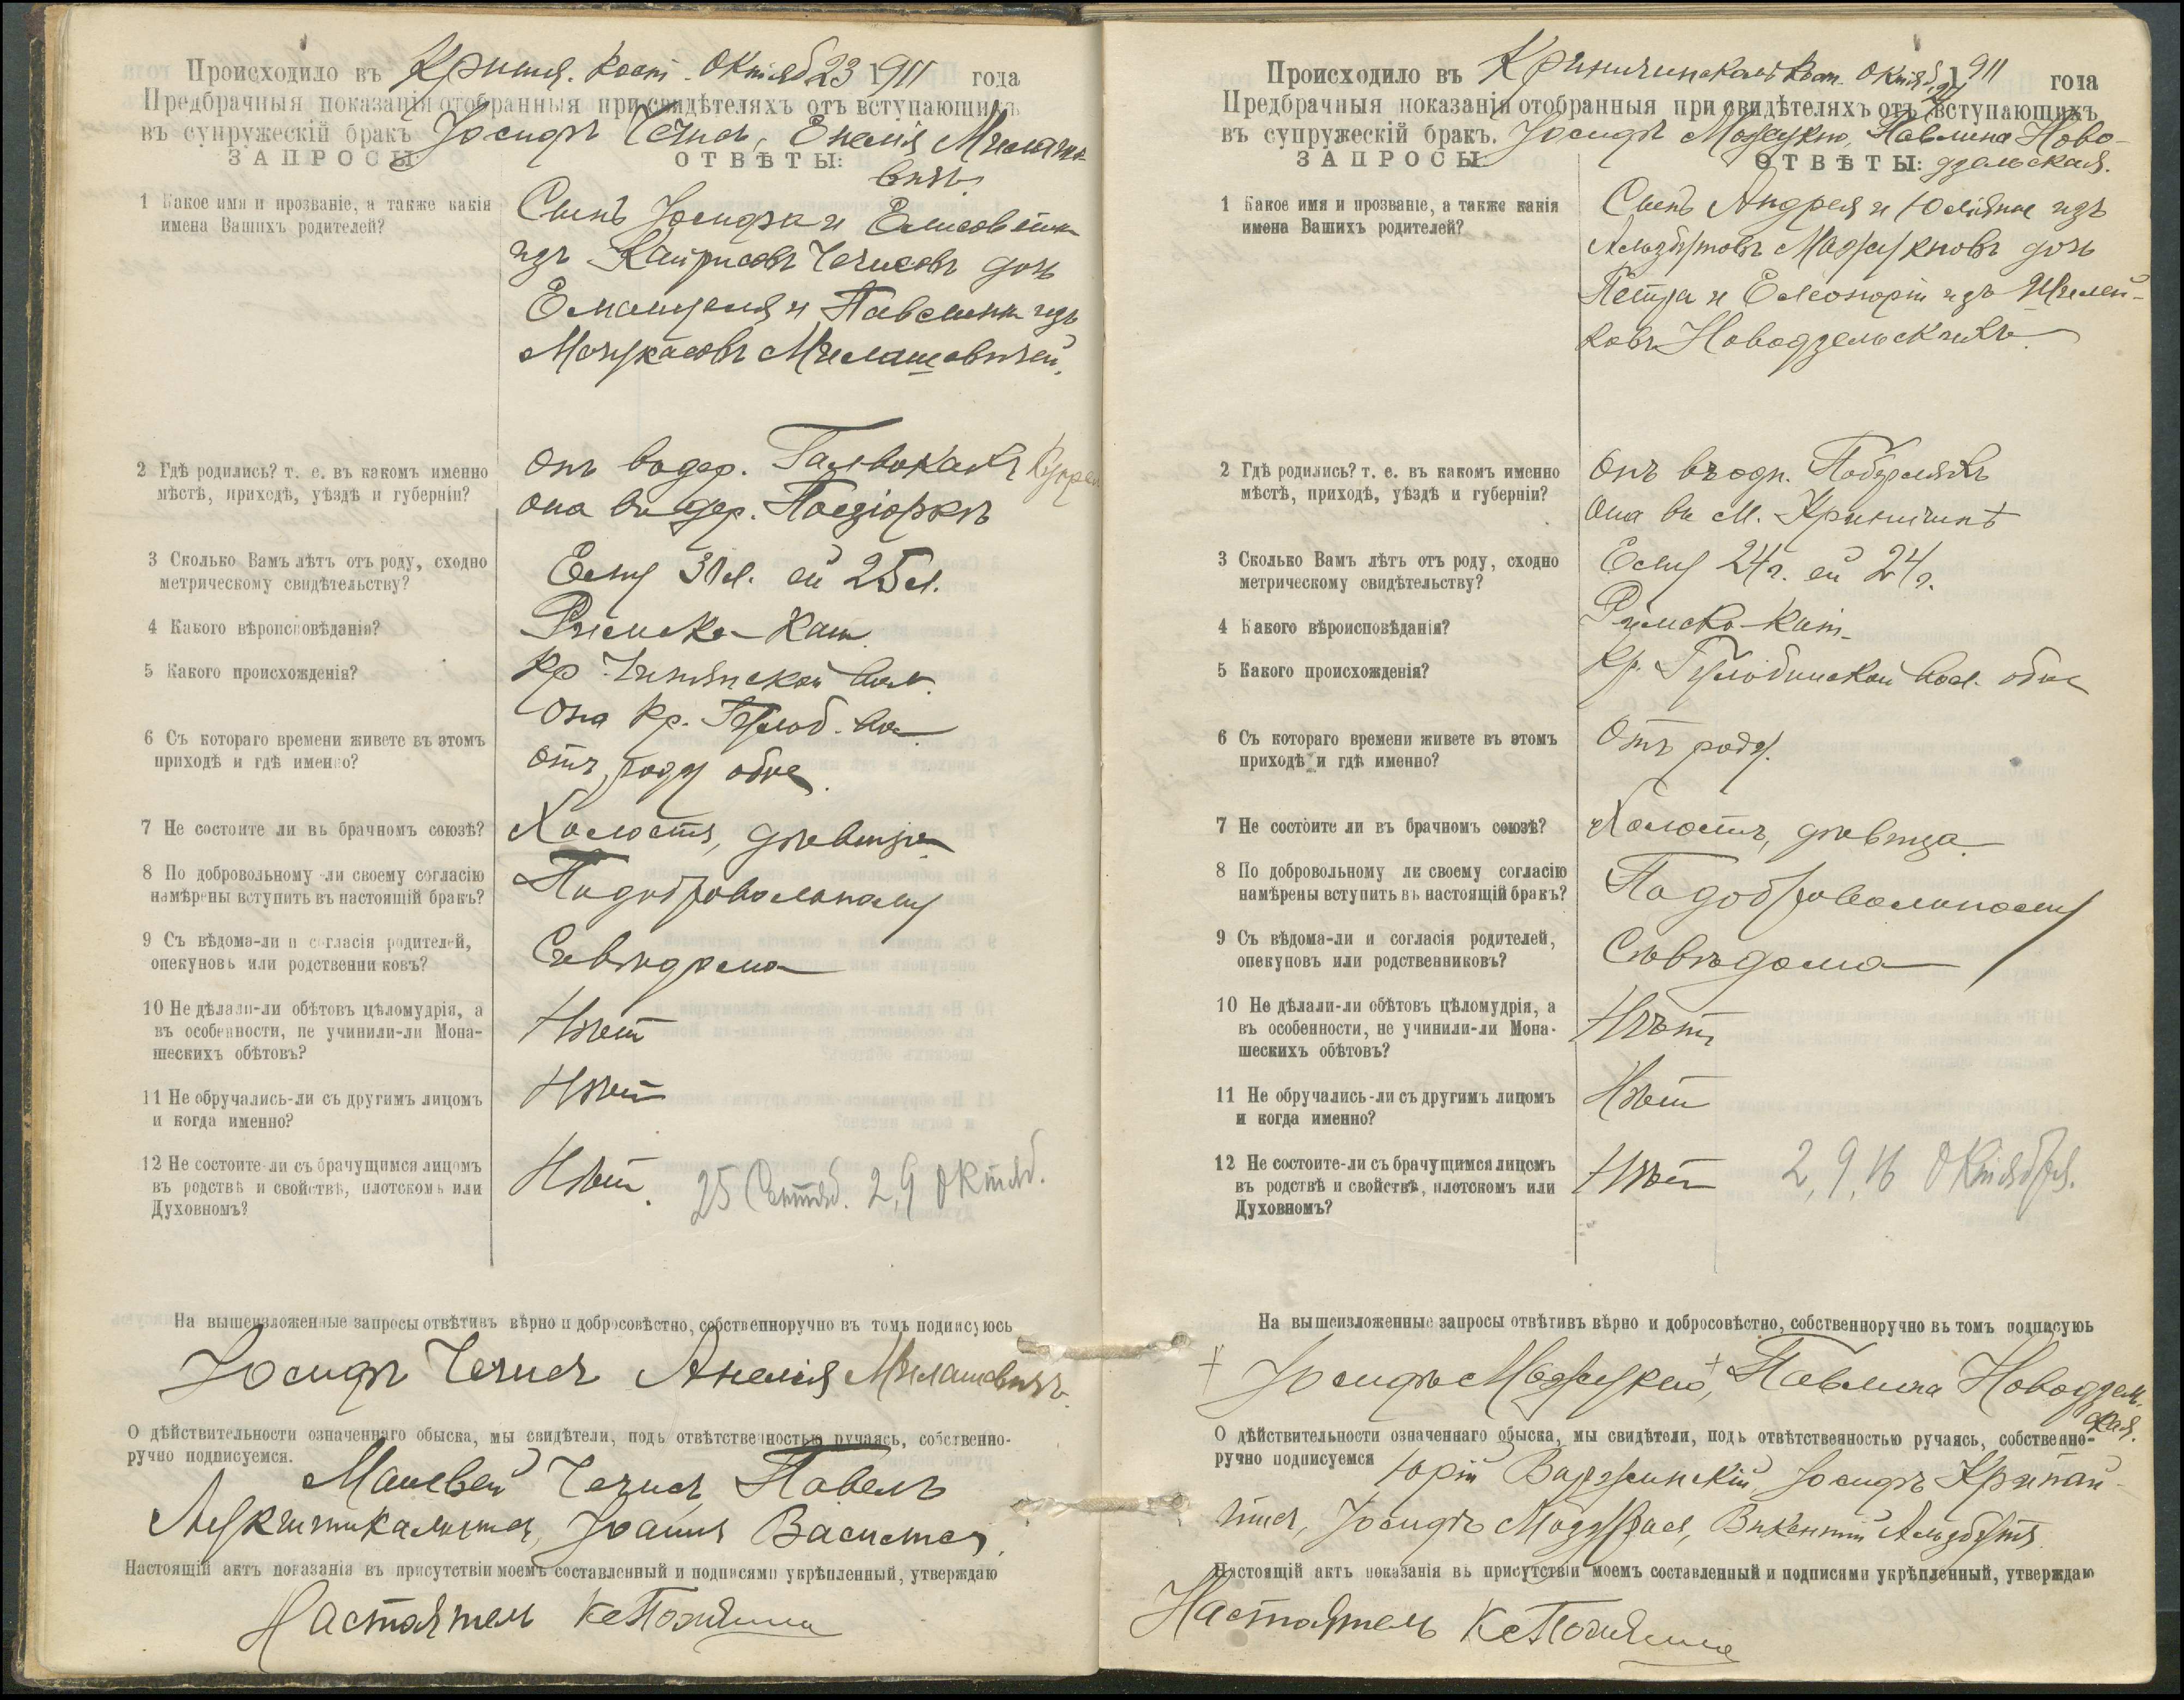 Происходило въ Кринич. Кост. Октяб 23 1911 года
Предбрачныя показанія отобранныя при свидѣтеляхъ отъ вступающихъ
въ супружескій бракъ Іосифъ Чечис,
ЗАПРОСЫ: ОТВѢТЫ:
1 Какое имя и прозваніе, а также какія
имена Вашихъ родителей?
Сынъ Іосифа и Елисаветы
изъ Чечисовъ дочь
Емануеля и Павлины изъ
Милашевичей.
2 Гдѣ родились? т. е. въ какомъ именно
мѣстѣ, приходѣ, уѣздѣ и губерніи?
Онъ в дер.
Она въ дер.
3 Сколько Вамъ лѣтъ отъ роду, сходно
метрическому свидѣтельству?
Ему 31 л. ей 25 л.
4 Какого вѣроисповѣданія?
Римско-Кат.
5 Какого происхожденія?
Кр.
Она кр.
6 Съ котораго времени живете въ этомъ
приходѣ и гдѣ именно?
Отъ роду обое.
7 Не состоите ли въ брачномъ союзѣ?
Холостъ, дѣвица
8 По добровольному-ли своему согласію
намѣрены вступить въ настоящій бракъ?
По добровольному
9 Съ вѣдома-ли и согласія родителей,
опекуновъ или родственниковъ?
Съ вѣдома
10 Не дѣлали-ли обѣтовъ цѣломудрія, а
въ особенности, не учинили-ли Мона-
шескихъ обѣтовъ?
Нѣт
11 Не обручались-ли съ другимъ лицомъ
и когда именно?
Нѣт
12 Не состоите-ли съ брачущимся лицомъ
въ родствѣ и свойствѣ, плотскомъ или
Духовномъ?
Нѣт. 25 Сентяб. 2, 9 Октяб.
На вышеизложенные запросы отвѣтивъ вѣрно и добросовѣстно, собственноручно въ томъ подписуюсь
Іосифъ Чечис Анелія Милашевичъ.
О дѣйствительности означеннаго обыска, мы свидѣтели, подъ отвѣтственностью ручаясь, собственно-
ручно подписуемся.
Матвей Чечис, Павелъ
Іоаннъ
Настоящій актъ показанія въ присутствіи моемъ составленный и подписями укрѣпленный, утверждаю
Настоятель
Происходило въ Криничинскомъ Кост. Октяб. 1911 года
Предбрачныя показанія отобранныя при свидѣтеляхъ отъ вступающихъ
въ супружескій бракъ. Іосифъ Павлина Ново-
ЗАПРОСЫ ОТВѢТЫ: дзельская.
1 Какое имя и прозваніе, а также какія
имена Вашихъ родителей?
Сынъ Андрея и Юліянны изъ
дочь
Петра и Елеоноры изъ
Новодзельскихъ
2 Гдѣ родились? т. е. въ какомъ именно
мѣстѣ, приходѣ, уѣздѣ и губерніи?
Онъ въ
Она въ м. Криничинѣ
3 Сколько Вамъ лѣтъ отъ роду, сходно
метрическому свидѣтельству?
Ему 24 г. ей 24 г.
4 Какого вѣроисповѣданія?
Римско-Кат.
5 Какого происхожденія?
Кр. вол. обое
6 Съ котораго времени живете въ этомъ
приходѣ и гдѣ именно?
Отъ роду.
7 Не состоите ли въ брачномъ союзѣ?
Холостъ, дѣвица
8 По добровольному ли своему согласію
намѣрены вступить въ настоящій бракъ?
По добровольному
9 Съ вѣдома-ли и согласія родителей,
опекуновъ или родственниковъ?
Съ вѣдома
10 Не дѣлали-ли обѣтовъ цѣломудрія, а
въ особенности, не учинили-ли Мона-
шескихъ обѣтовъ?
Нѣтъ
11 Не обручались-ли съ другимъ лицомъ
и когда именно?
Нѣт
12 Не состоите-ли съ брачущимся лицомъ
въ родствѣ и свойствѣ, плотскомъ или
Духовномъ?
Нѣт 2, 9, 16 Октября.
На вышеизложенные запросы отвѣтивъ вѣрно и добросовѣстно, собственноручно въ томъ подписуюь
+ Іосифъ + Павлина Новодзель-
ская.
О дѣйствительности означеннаго обыска, мы свидѣтели, подъ отвѣтственностью ручаясь, собственно-
ручно подписуемся
Юрій Іосифъ
Іосифъ Викентій
Настоящій актъ показанія въ присутствіи моемъ составленный и подписями укрѣпленный, утверждаю
Настоятель